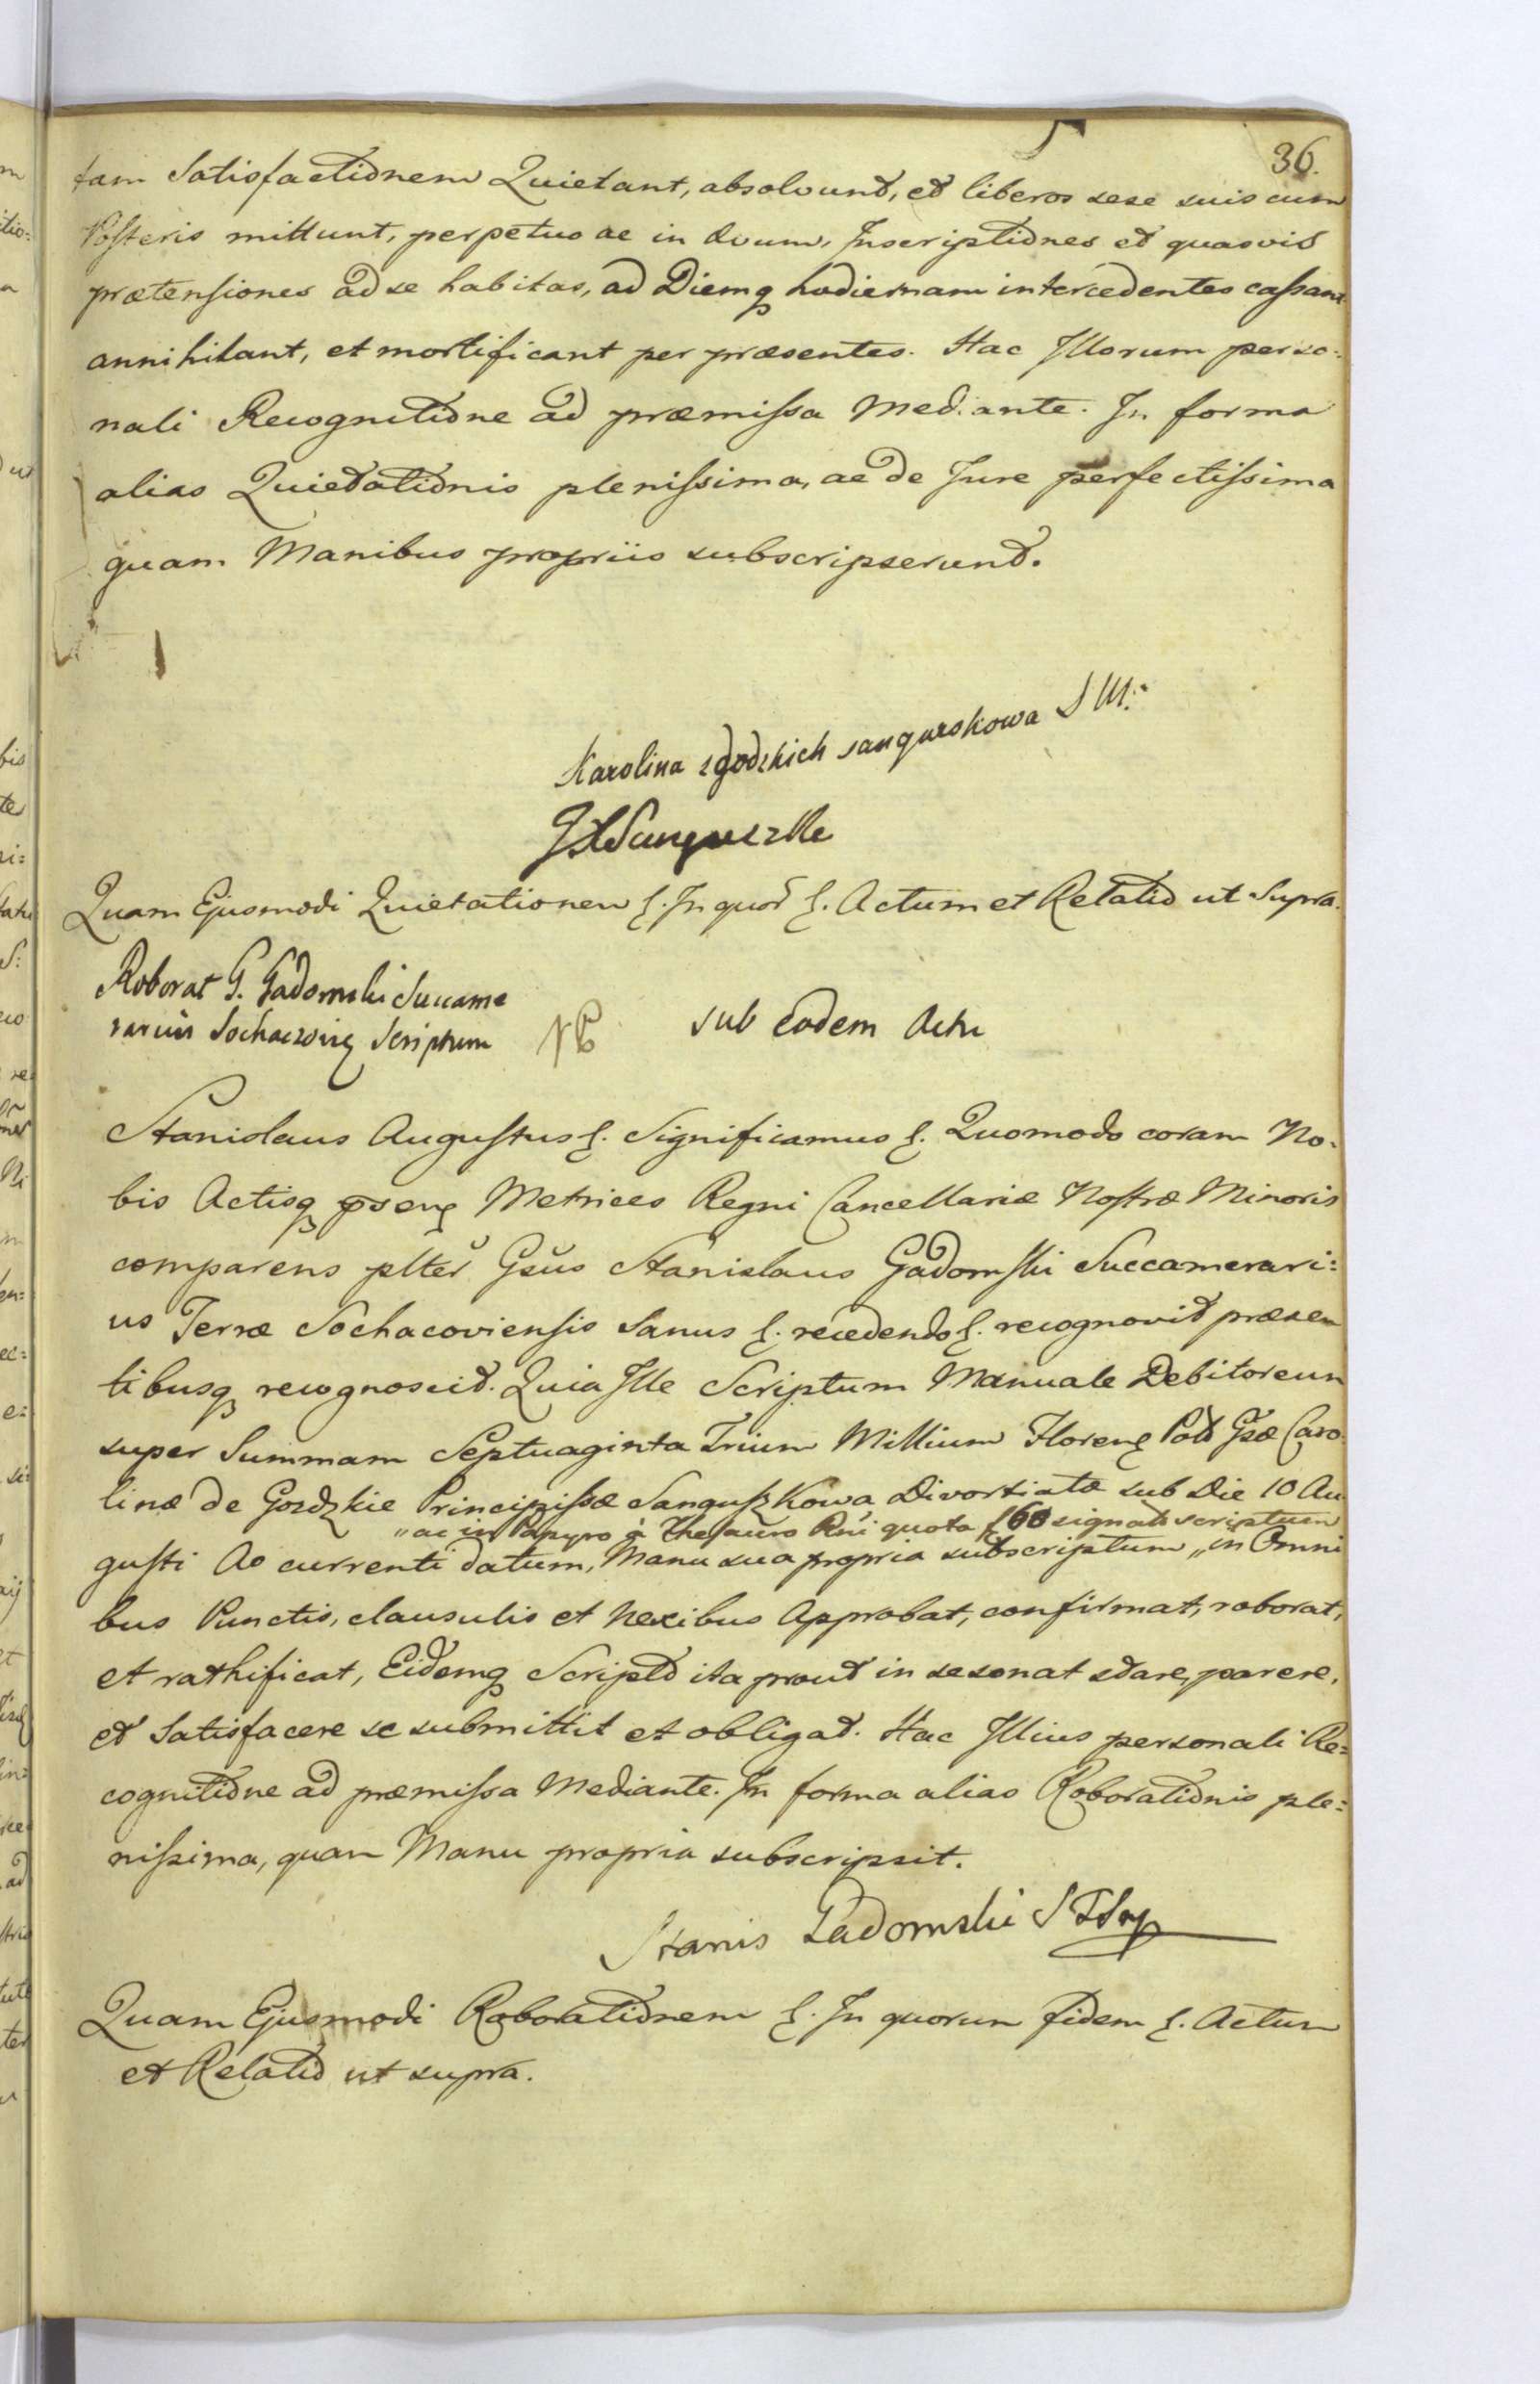 36.
tam Satisfactionem Quietant, absolvunt, et liberos sese suis cum
Posteris mittunt, perpetuo ac in ævum, Inscriptiones et quasvis
prætensiones ad se habitas, ad Diemq hodiernam intercedentes cassant
annihilant, et mortificant per præsentes. Hac Illorum perso:
nali Recognitione ad præmissa Mediante. In forma
alias Quietationis plenissima, ac de Jure perfectissima
quam Manibus propriis subscripserunt.
Karolina zgodzkich sanguszkowa S M:
Quam Ejusmodi Quietationem &. In quor &. Actum et Relatio ut Supra.
Roborat G. Gadomski Succame
rarius Sochaczovieng Scriptum
NB
sub Eodem Actu
Stanislaus Augustus &. Significamus &. Quomodo coram No-
bis Actisq pseng Metrices Regni Cancellariæ Nostræ Minoris
comparens plter Gsus Stanislaus Gadomski Succamerari:
us Terræ Sochacoviensis Sanus &. recedendo &. recognovit præsen
tibusq recognoscit. Quia Ille Scriptum Manuale Debitoreum
super Summam Septuaginta Trium Millium Floreng Pold Gsæ Caro
linæ de Gozdzkie Principissæ Sanguszkowa Divortiatæ sub Die 10 Au
„ac in Papyro à Thesauro Rni quota 160 signato scriptum
gusti Ao currenti datum, Manu sua propria subscriptum „in Omni
bus Punctis, clausulis et Nexibus Approbat, confirmat, roborat,
et rathificat, Eidemq Scripto ita prout in se sonat stare, parere,
et Satisfacere se submittit et obligat. Hac Illius personali Re=
cognitione ad præmissa Mediante. In forma alias Roborationis ple=
nissima, quam Manu propria subscripsit.
Stanis Gadomski
Quam Ejusmodi Roborationem &. In quorum fidem &. Actum
et Relatio ut supra.